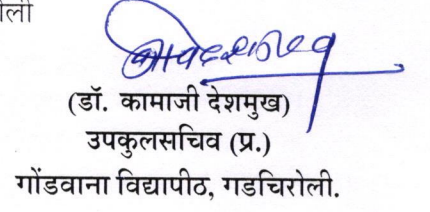 ोली
(डॉ. कामाजी देशमुख)
उपकुलसचिव (प्र.)
गोंडवाना विद्यापीठ, गडचिरोली.